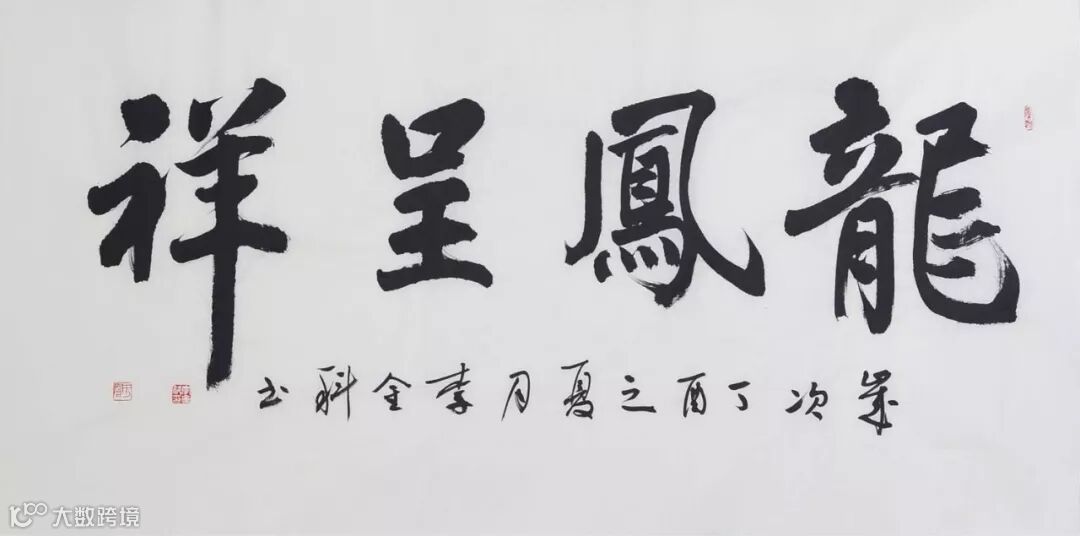 龍鳳呈祥
歲次丁酉之夏月李全科书
大数跨境